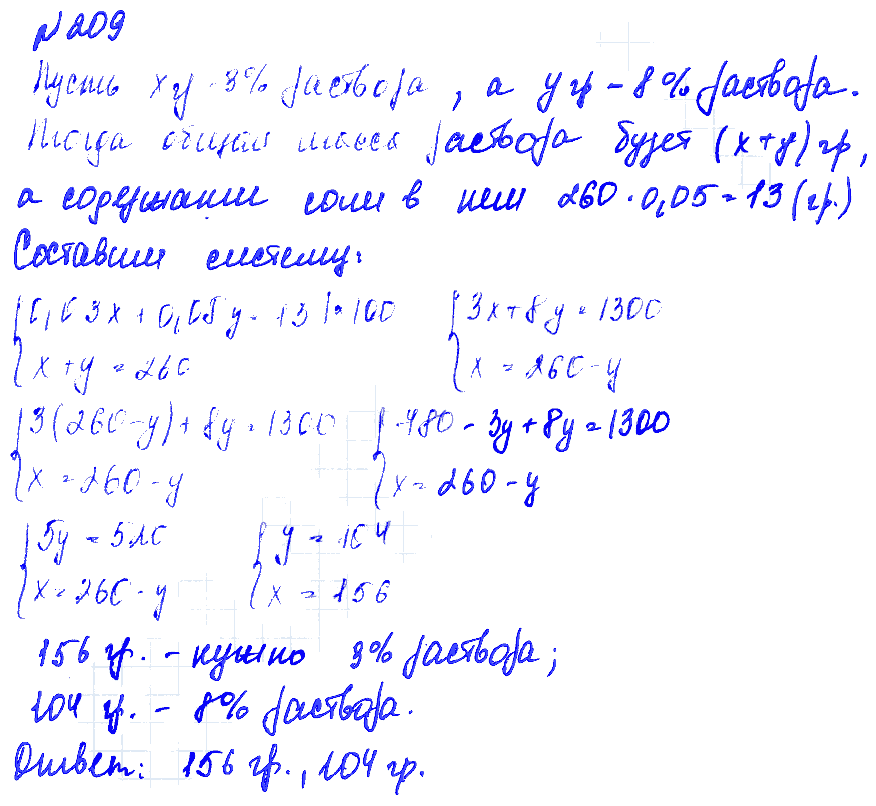 №209
Пусть x гр - 3% раствора, а y гр - 8% раствора.
Тогда общая масса раствора будет (x+y) гр,
а содержание соли в нем 260 · 0,05 = 13 (гр.)
Составим систему:
{0,03x + 0,08y = 13 |·100 {3x + 8y = 1300
{x + y = 260 {x = 260 - y
{3(260-y) + 8y = 1300 {780 - 3y + 8y = 1300
{x = 260 - y {x = 260 - y
{5y = 520 {y = 104
{x = 260 - y {x = 156
156 гр. - нужно 3% раствора;
104 гр. - 8% раствора.
Ответ: 156 гр., 104 гр.